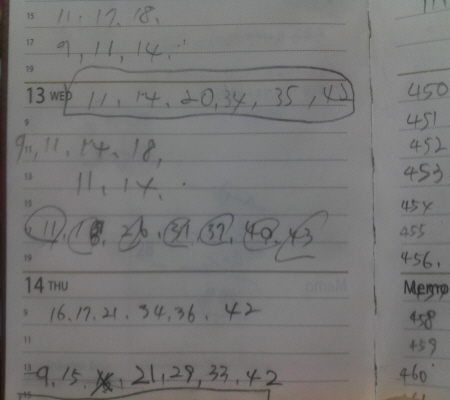 15 11. 17. 18.
17 9, 11, 14.
19
13 WED 11. 14. 20, 34, 35, 42
9
9, 11. 14. 18,
13 11, 14.
15
11. 18. 26. 31. 37. 40. 43
19
14 THU
9 16. 17. 21. 34, 36, 42
11
13 9, 15. 21, 29, 33. 42
15
450
451
452
453
454
455
456.
Memo
458
459
460